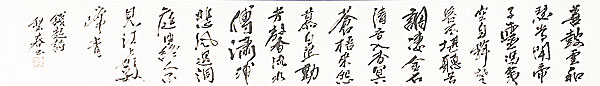 善鼓雲和
瑟常聞帝
子靈馮夷
空自舞楚
客不堪聽苦
調淒金石
清音入杳冥
蒼梧來怨
慕白芷動
芳馨流水
傳瀟浦
悲風過洞
庭曲終人不
見江上數
峰青
錢起詩